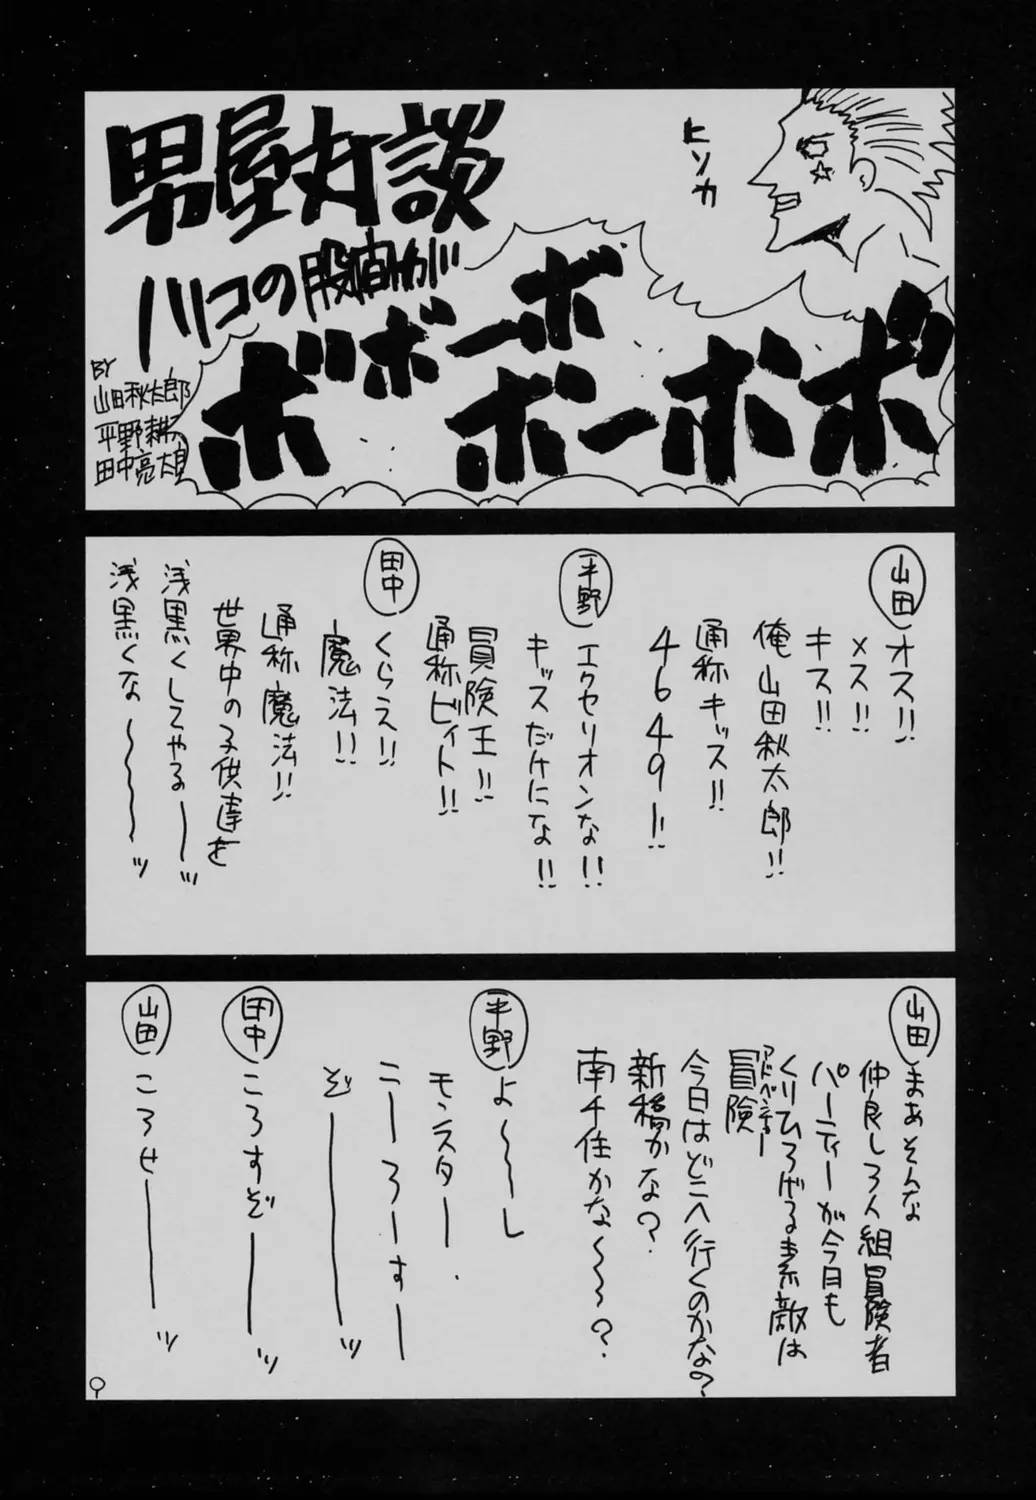 男屋対談
ハコの股間が
ボボーボ
ボーボボ
ヒソカ
BY
山田秋太郎
平野耕
田中亮太
山田
オス!!
メス!!
キス!!
俺山田秋太郎!!
通称キッス!!
4649ー!!
平野
エクセリオンな!!
キッスだけにな!!
冒険王!!
通称ビィト!!
田中
くらえ!!
魔法!!
通称魔法!!
世界中の子供達を
浅黒くしてやる〜〜ッ
浅黒くな〜〜〜ッ
山田
まぁそんな
仲良し3人組冒険者
パーティーが今日も
くりひろげる素敵は
冒険
アドベンチャー
今日はどこへ行くのかな?
新橋かな?
南千住かな〜〜?
平野
よ〜〜し
モンスター
こーろーすー
ぞーーーッ
田中
ころすぞーーッ
山田
ころせーーーッ